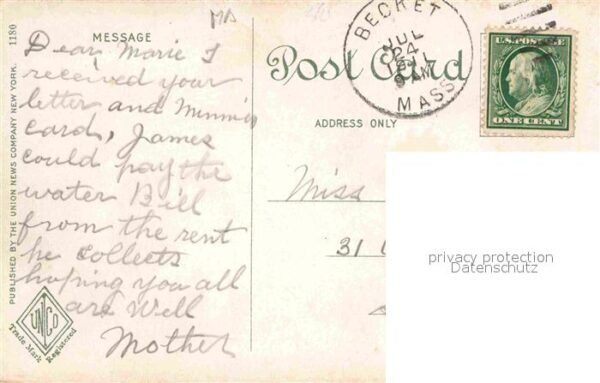 MA
1180
PUBLISHED BY THE UNION NEWS COMPANY NEW YORK.
MESSAGE
Dear Marie I
received your
letter and Minnies
card, James
could pay the
water Bill
from the rent
he collects
hoping you all
are Well
Mother
UNCO
Trade Mark Registered
Post Card
ADDRESS ONLY
BECKET
JUL
24
9 AM
MASS
U.S. POSTAGE
ONE CENT
Miss
31
privacy protection
Datenschutz